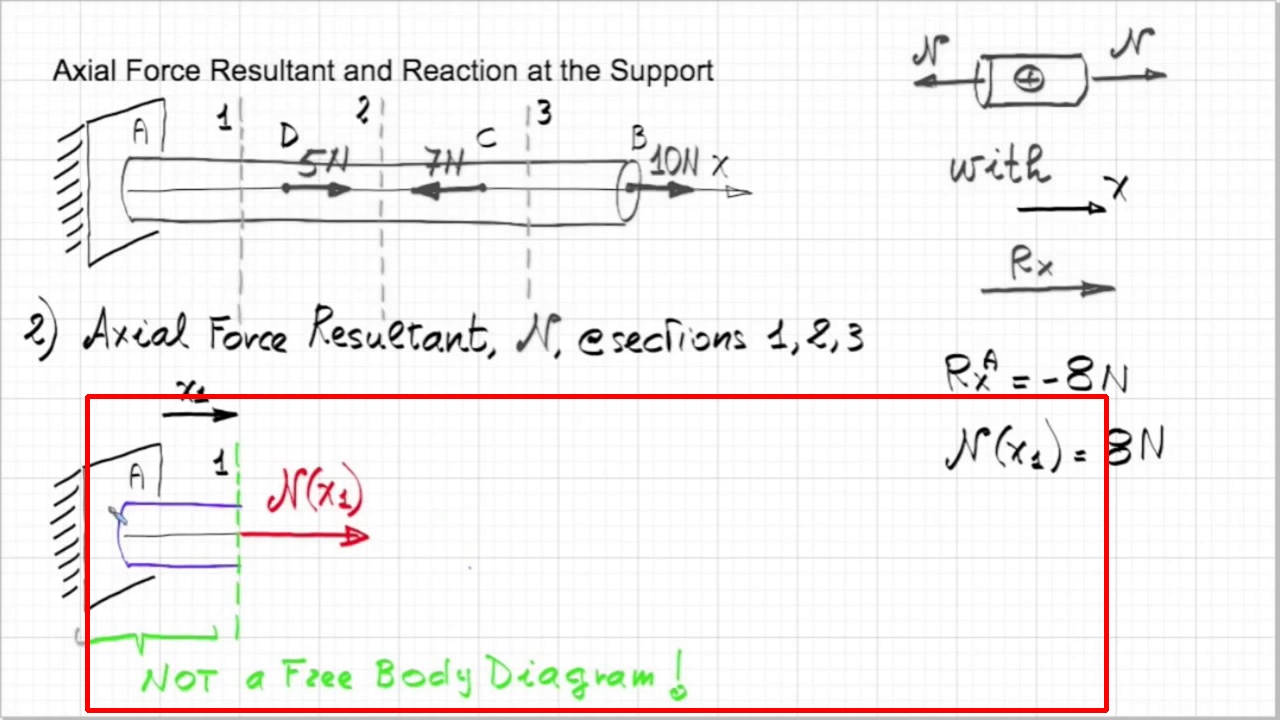 Axial Force Resultant and Reaction at the Support
N N
⊕
A 1 D 5N 2 7N C 3 B 10N x
with
x
Rx
2) Axial Force Resultant, N, @sections 1,2,3
Rx^A = -8N
x1
N(x1) = 8N
A 1 N(x1)
NOT a Free Body Diagram!